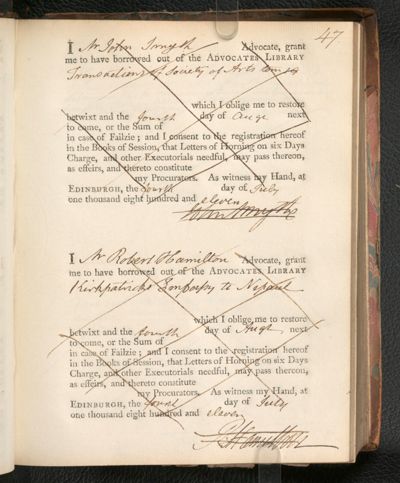 47
I Mr John Smyth Advocate, grant
me to have borrowed out of the ADVOCATES LIBRARY
Transactions of Society of Arts
which I oblige me to restore
betwixt and the fourth day of Augt next
to come, or the Sum of
in case of Failzie; and I consent to the registration hereof
in the Books of Session, that Letters of Horning on six Days
Charge, and other Executorials needful, may pass thereon,
as effeirs, and thereto constitute
my Procurators. As witness my Hand, at
EDINBURGH, the fourth day of July
one thousand eight hundred and eleven
Smythe
I Mr Robert Hamilton Advocate, grant
me to have borrowed out of the ADVOCATES LIBRARY
Kirkpatricks Embassy to Nepaul
which I oblige me to restore
betwixt and the fourth day of Augt next
to come, or the Sum of
in case of Failzie; and I consent to the registration hereof
in the Books of Session, that Letters of Horning on six Days
Charge, and other Executorials needful, may pass thereon,
as effeirs, and thereto constitute
my Procurators. As witness my Hand, at
EDINBURGH, the fourth day of July
one thousand eight hundred and eleven